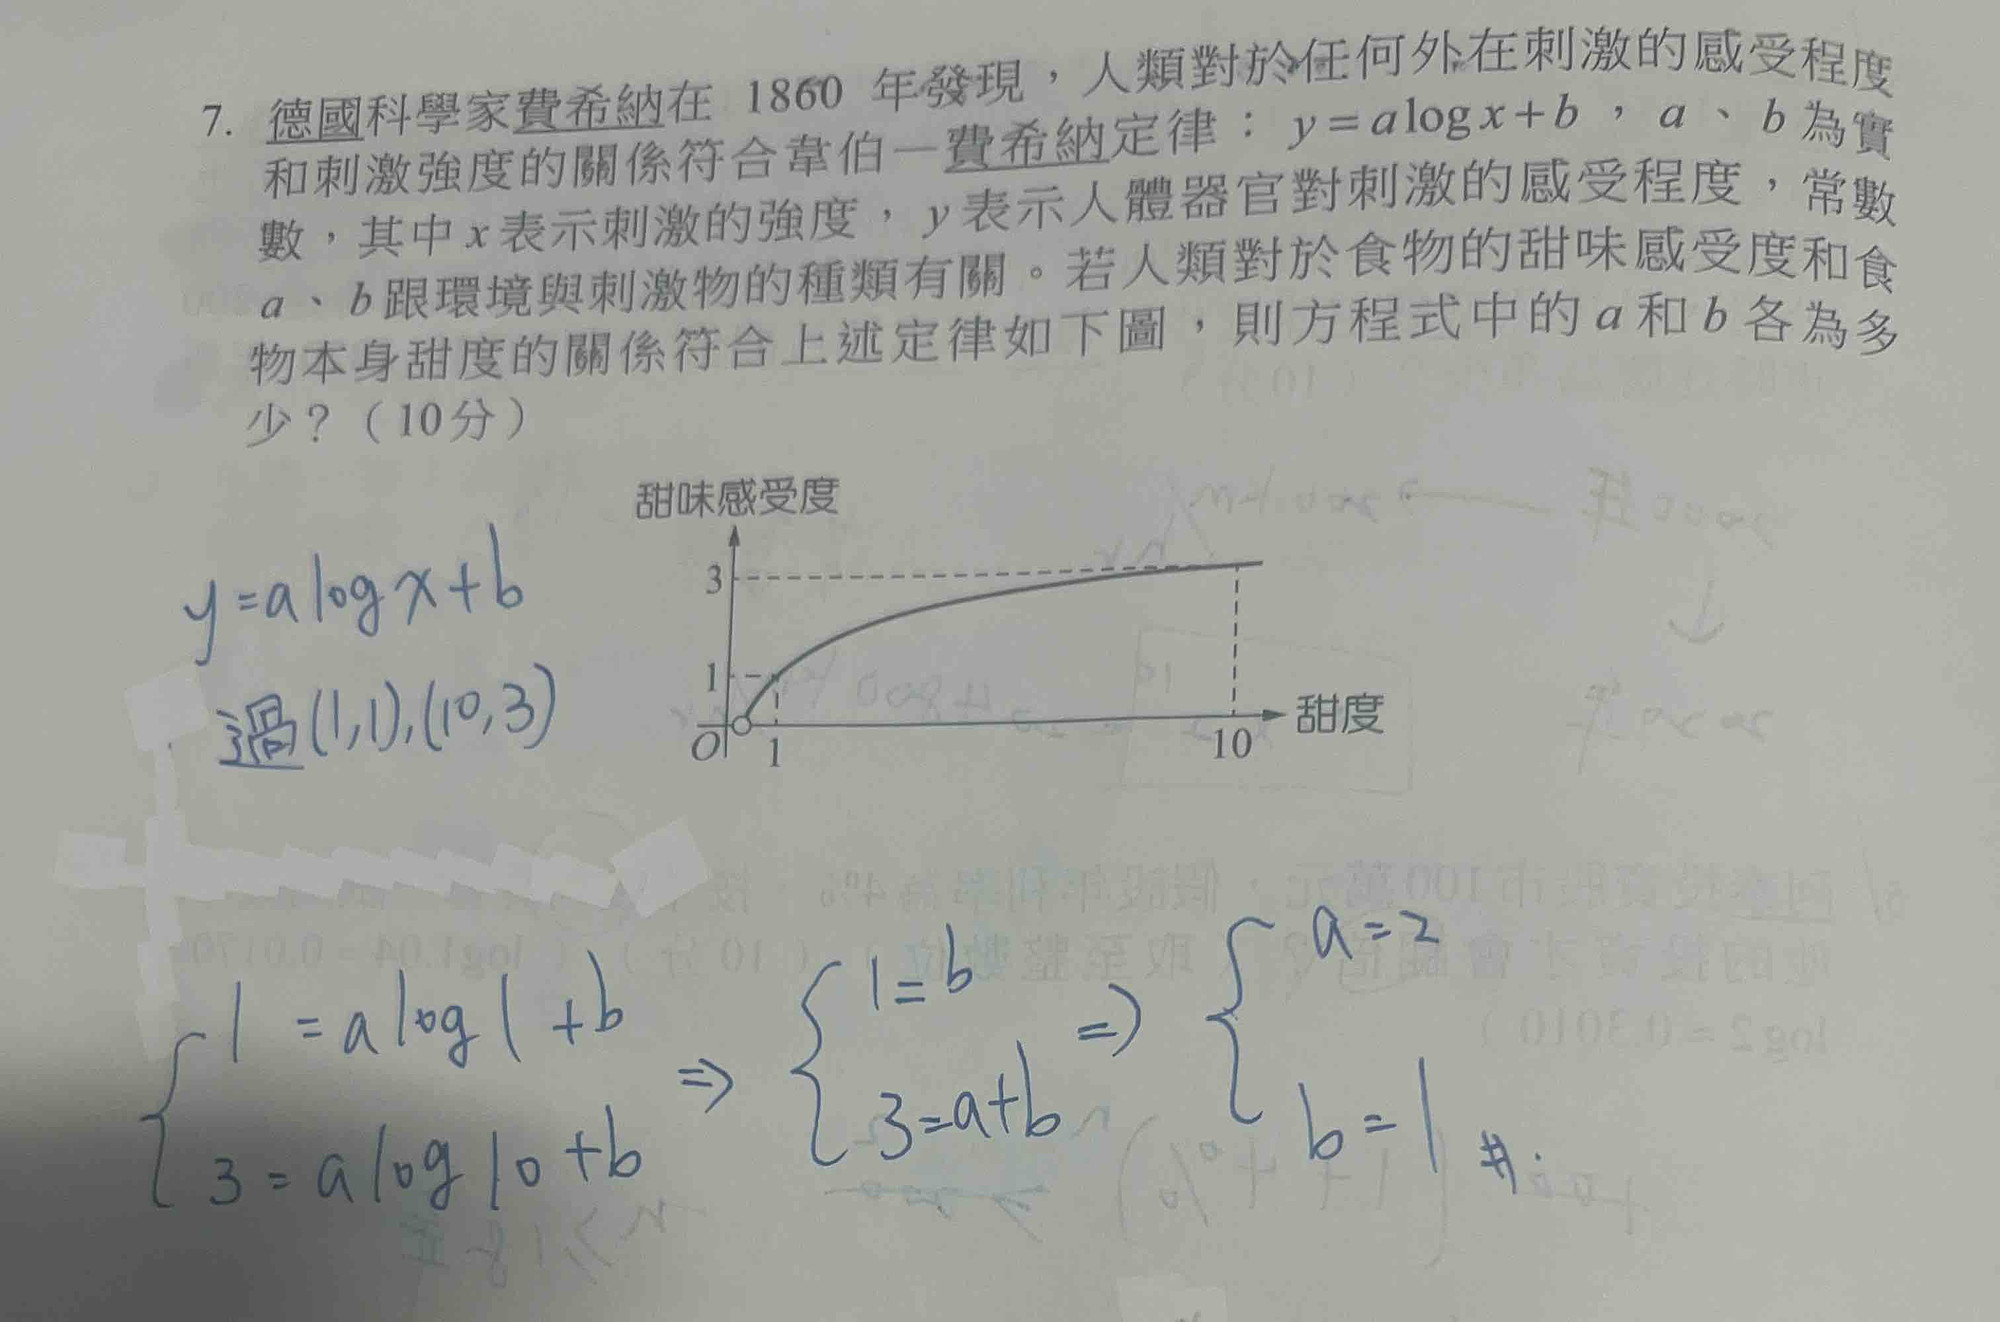 7. 德國科學家費希納在 1860 年發現，人類對於任何外在刺激的感受程度
和刺激強度的關係符合韋伯－費希納定律：y=alogx+b，a、b為實
數，其中x表示刺激的強度，y表示人體器官對刺激的感受程度，常數
a、b跟環境與刺激物的種類有關。若人類對於食物的甜味感受度和食
物本身甜度的關係符合上述定律如下圖，則方程式中的a和b各為多
少？（10分）
甜味感受度
3
1
O
1
10
甜度
y=alogx+b
過(1,1),(10,3)
1=alog1+b
3=alog10+b
⇒
1=b
3=a+b
⇒
a=2
b=1 #.